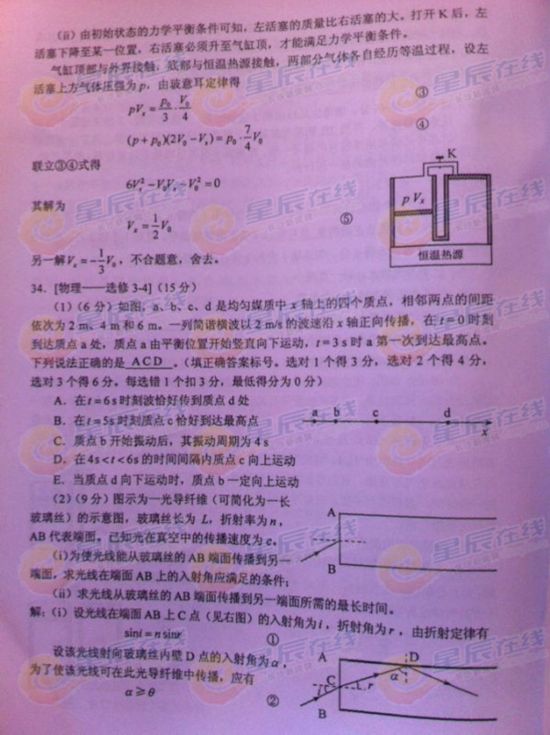 (ii) 由初始状态的力学平衡条件可知，左活塞的质量比右活塞的大。打开 K 后，左
活塞下降至某一位置，右活塞必须升至气缸顶，才能满足力学平衡条件。
气缸顶部与外界接触，底部与恒温热源接触，两部分气体各自经历等温过程，设左
活塞上方气体压强为 p，由玻意耳定律得
pVₓ = p₀/3 · V₀/4 ③
(p + p₀)(2V₀ − Vₓ) = p₀ · 7/4 V₀ ④
联立③④式得
6Vₓ² − V₀Vₓ − V₀² = 0
其解为
Vₓ = 1/2 V₀ ⑤
另一解 Vₓ = −1/3 V₀，不合题意，舍去。
K
p Vₓ
恒温热源
34. [物理——选修 3-4] (15 分)
(1) (6 分) 如图，a、b、c、d 是均匀媒质中 x 轴上的四个质点，相邻两点的间距
依次为 2 m、4 m 和 6 m。一列简谐横波以 2 m/s 的波速沿 x 轴正向传播，在 t = 0 时刻
到达质点 a 处，质点 a 由平衡位置开始竖直向下运动，t = 3 s 时 a 第一次到达最高点。
下列说法正确的是 ACD 。(填正确答案标号。选对 1 个得 3 分，选对 2 个得 4 分，
选对 3 个得 6 分。每选错 1 个扣 3 分，最低得分为 0 分)
A．在 t = 6 s 时刻波恰好传到质点 d 处
B．在 t = 5 s 时刻质点 c 恰好到达最高点
C．质点 b 开始振动后，其振动周期为 4 s
D．在 4 s < t < 6 s 的时间间隔内质点 c 向上运动
E．当质点 d 向下运动时，质点 b 一定向上运动
a b c d
x
(2) (9 分) 图示为一光导纤维 (可简化为一长
玻璃丝) 的示意图，玻璃丝长为 L，折射率为 n，
AB 代表端面。已知光在真空中的传播速度为 c。
(i) 为使光线能从玻璃丝的 AB 端面传播到另一
端面，求光线在端面 AB 上的入射角应满足的条件；
(ii) 求光线从玻璃丝的 AB 端面传播到另一端面所需的最长时间。
A
B
解：(i) 设光线在端面 AB 上 C 点 (见右图) 的入射角为 i，折射角为 r，由折射定律有
sin i = n sin r ①
设该光线射向玻璃丝内壁 D 点的入射角为 α，
为了使该光线可在此光导纤维中传播，应有
α ≥ θ ②
A
D
C
i
r
α
B
星辰在线